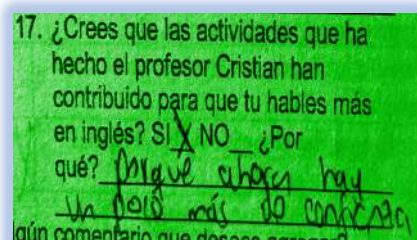 17. ¿Crees que las actividades que ha
hecho el profesor Cristian han
contribuido para que tu hables más
en inglés? SI X NO__ ¿Por
qué? Porque ahora hay
un poco más de confianza
lgún comentario que deseas agregar?